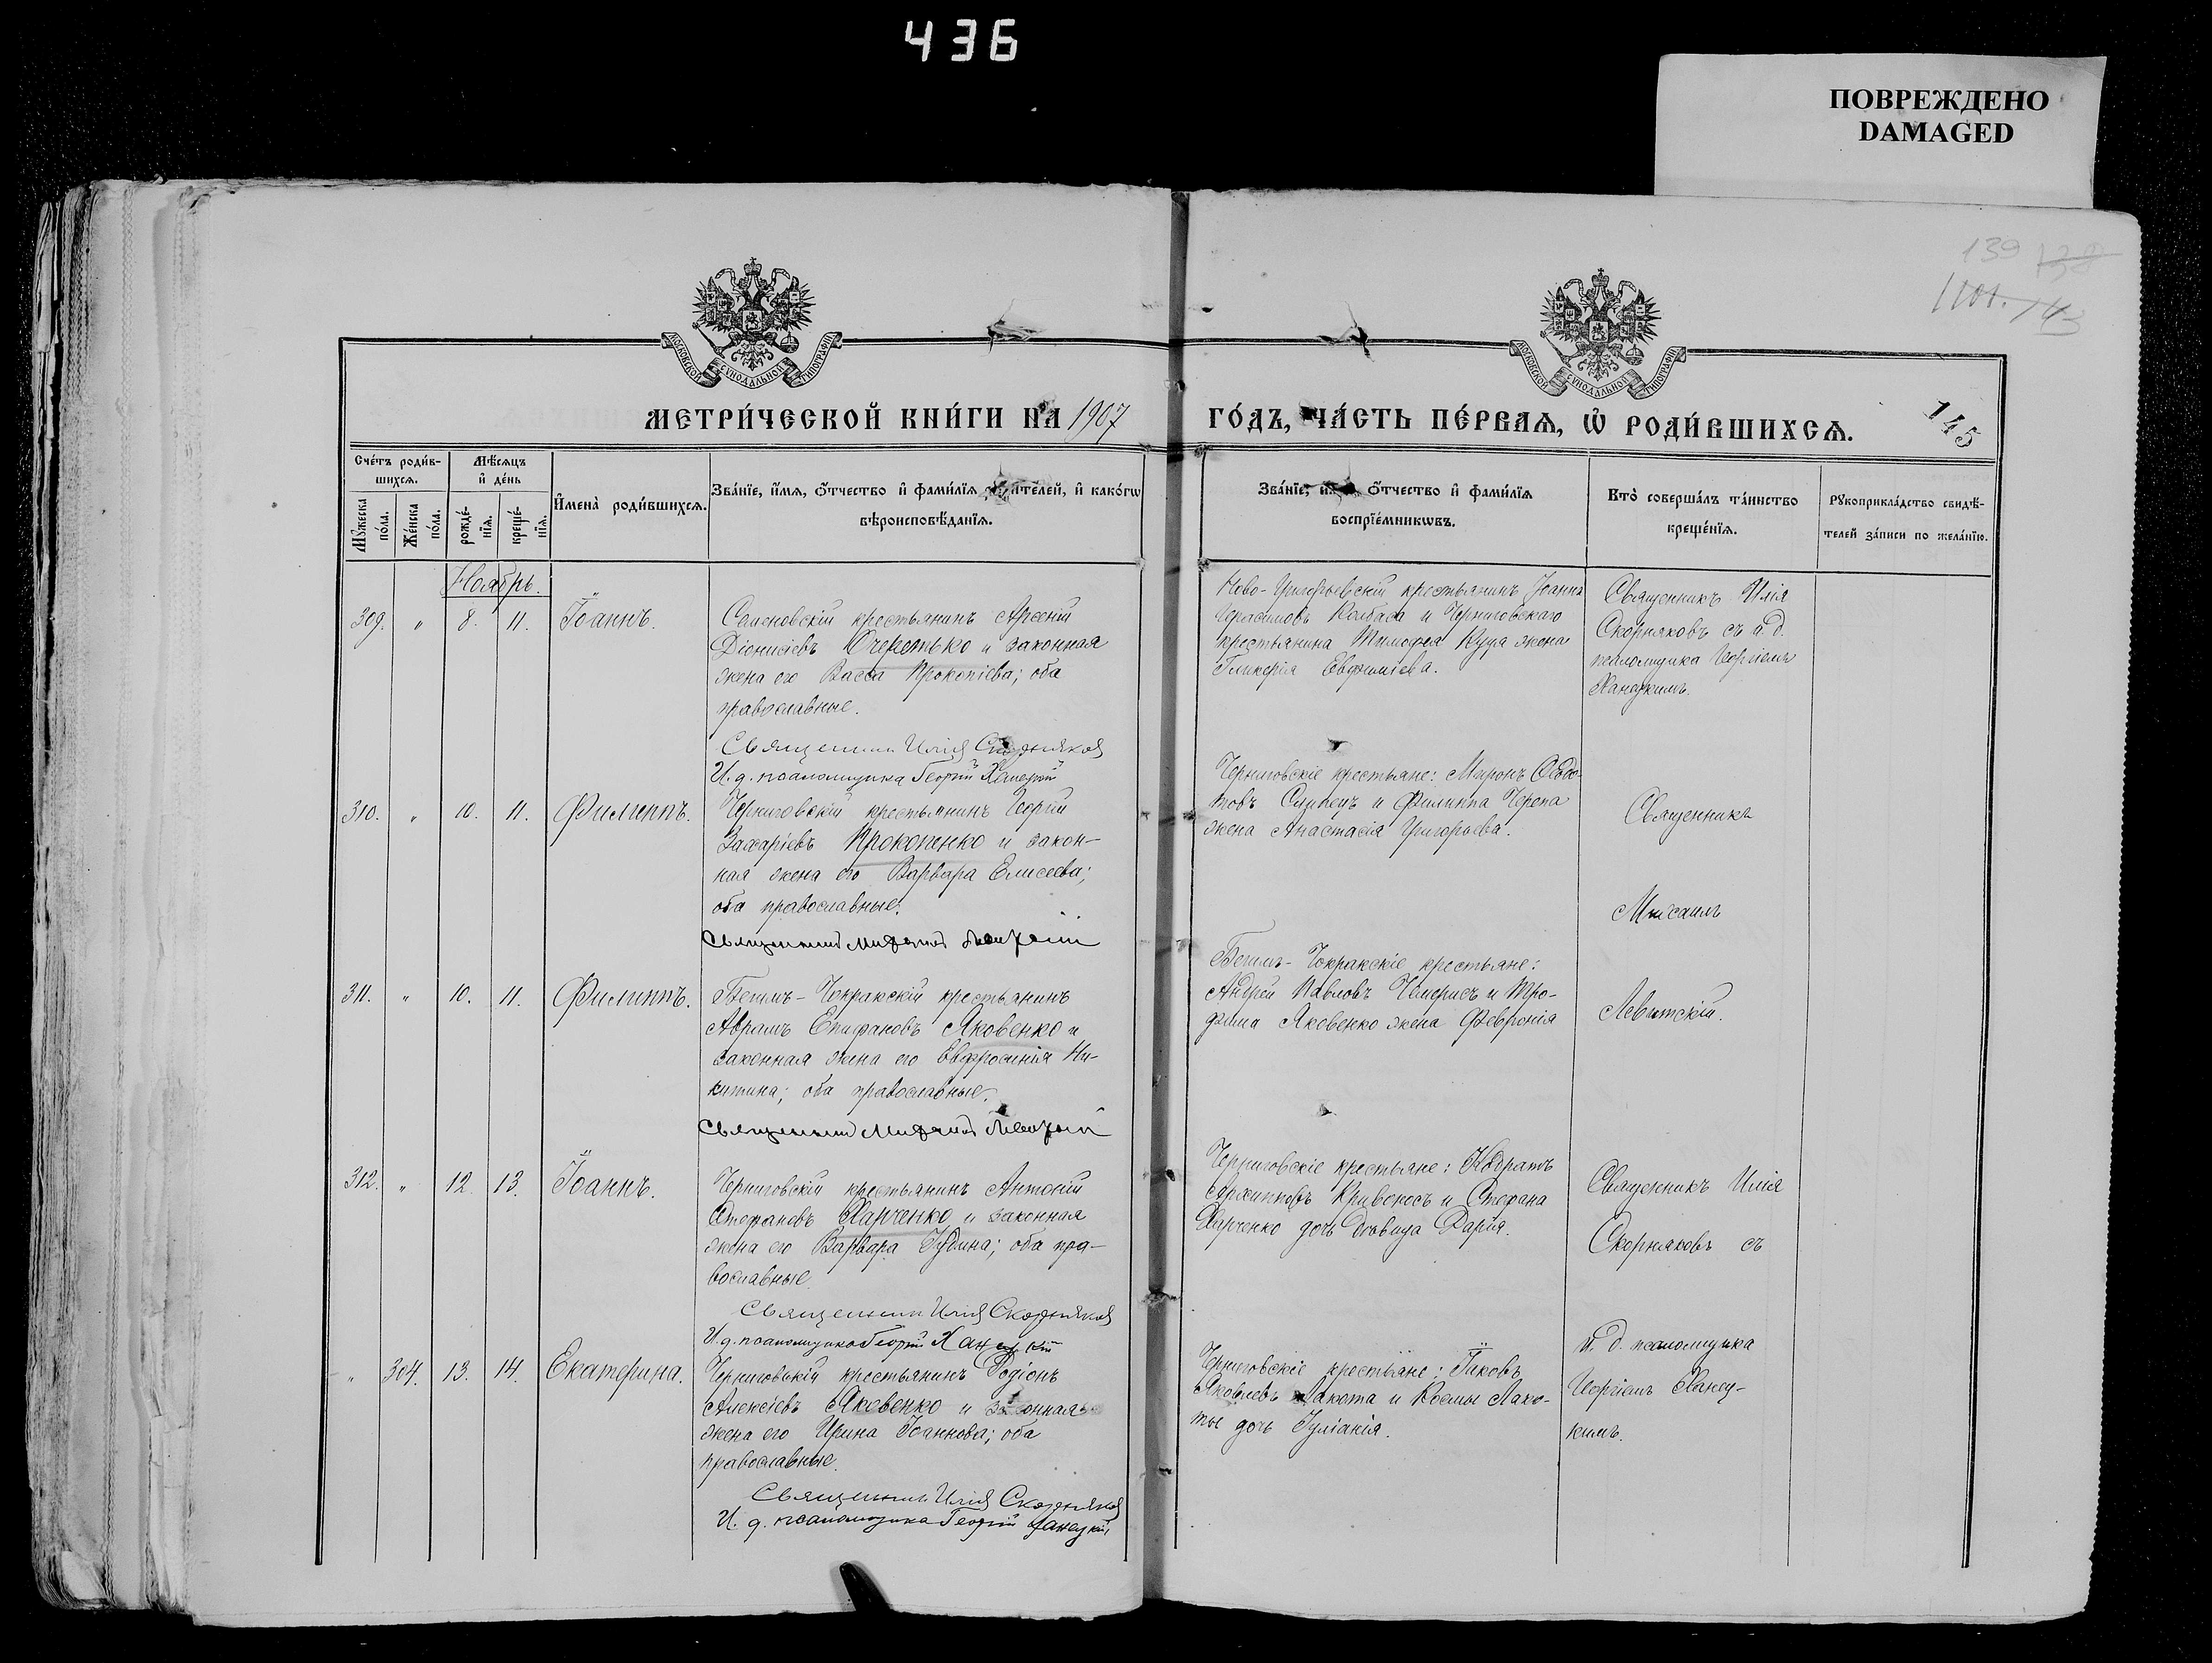 436
ПОВРЕЖДЕНО
DAMAGED
139 138
145
МОСКОВСКОЙ СѴНОДАЛЬНОЙ ТИПОГРАФІИ
МОСКОВСКОЙ СѴНОДАЛЬНОЙ ТИПОГРАФІИ
МЕТРИ́ЧЕСКОЙ КНИ́ГИ НА 1907
ГО́ДЪ, ЧА́СТЬ ПЕ́РВАѦ, Ѽ РОДИ́ВШИХСѦ.
Сче́тъ роди́в-
шихсѧ.
Мѣ́сѧцъ
и҆ де́нь
Мꙋ́жеска
по́ла.
Же́нска
по́ла.
рожде́-
нїѧ.
креще́-
нїѧ.
И҆мена̀ роди́вшихсѧ.
Зва́нїе, и҆́мѧ, ѻ҆́тчество и҆ фами́лїѧ роди́телей, и҆ како́гѡ
вѣроисповѣ́данїѧ.
Зва́нїе, и҆́мѧ, ѻ҆́тчество и҆ фами́лїѧ
воспрїе́мникѡвъ.
Кто̀ соверша́лъ та́инство
креще́нїѧ.
Рꙋкоприкла́дство свидѣ́-
телей за́писи по жела́нїю.
Ноябрь.
309. " 8. 11. Іоаннъ.
Семеновскій крестьянинъ Арсеній
Діонисіевъ Очеретько и законная
жена его Васса Прокопіева; оба
православные.
Священникъ Илія Скорняковъ
И. д. псаломщика Георгій Ханецкій
Ново-Григорьевскій крестьянинъ Іоаннъ
Герасимовъ Колбаса и Черниговскаго
крестьянина Тимофея Куца жена
Гликерія Евфиміева.
Священникъ Илія
Скорняковъ съ и. д.
псаломщика Георгіемъ
Ханецкимъ.
310. " 10. 11. Филиппъ.
Черниговскій крестьянинъ Георгій
Захаріевъ Прокопенко и закон-
ная жена его Варвара Елисеева;
оба православные.
Священникъ Мисаилъ Левитскій
Черниговскіе крестьяне: Миронъ Ѳедо-
товъ Слипець и Филиппа Черепа
жена Анастасія Григорьева.
Священникъ
Мисаилъ
Левитскій.
311. " 10. 11. Филиппъ.
Бегимъ-Чокракскій крестьянинъ
Аврамъ Епифановъ Яковенко и
законная жена его Евфросинія Ни-
китина; оба православные.
Священникъ Мисаилъ Левитскій
Бегимъ-Чокракскіе крестьяне:
Андрей Павловъ Чемерисъ и Тро-
фима Яковенко жена Февронія
312. " 12. 13. Іоаннъ.
Черниговскій крестьянинъ Антоній
Стефановъ Харченко и законная
жена его Варвара Іудина; оба пра-
вославные.
Священникъ Илія Скорняковъ
И. д. псаломщика Георгій Ханецкій
Черниговскіе крестьяне: Кодратъ
Архипповъ Кривоносъ и Стефана
Харченко дочь дѣвица Дарія.
Священникъ Илія
Скорняковъ съ
и. д. псаломщика
Георгіемъ Ханец-
кимъ.
" 304. 13. 14. Екатерина.
Черниговскій крестьянинъ Родіонъ
Алексіевъ Яковенко и законная
жена его Ирина Іоаннова; оба
православные.
Священникъ Илія Скорняковъ
И. д. псаломщика Георгій Ханецкій
Черниговскіе крестьяне: Іаковъ
Яковлевъ Лакота и Космы Лако-
ты дочь Іуліанія.